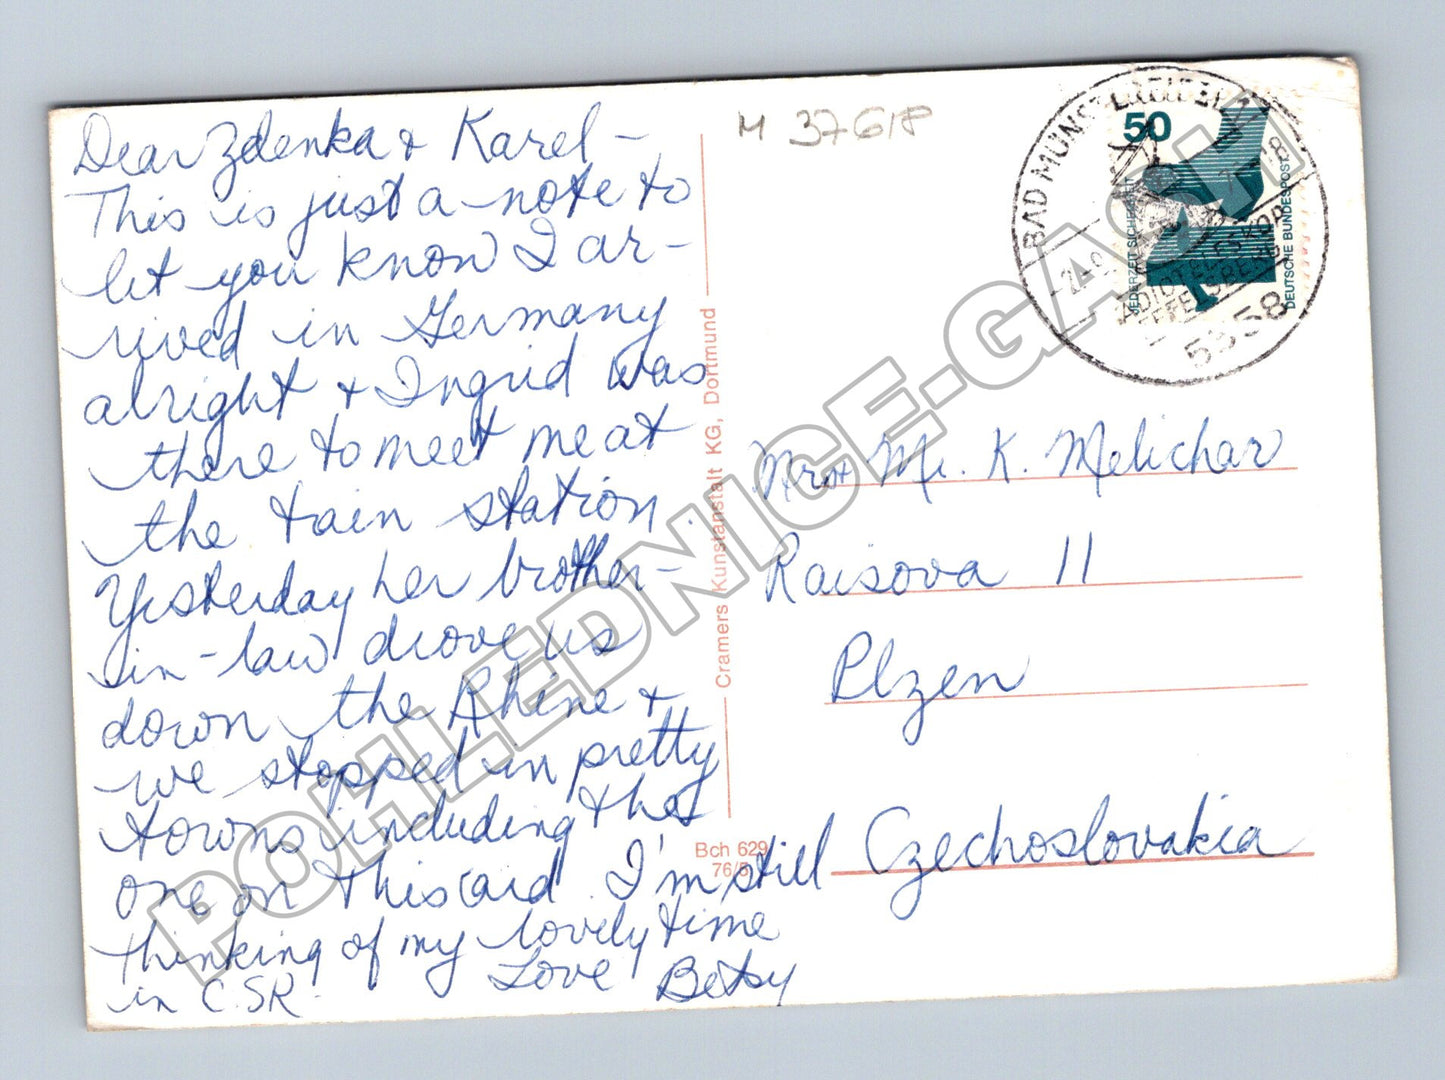 Dear Zdenka & Karel –
This is just a note to
let you know I ar-
rived in Germany
alright & Ingrid was
there to meet me at
the tain station.
Yesterday her brother-
in-law drove us
down the Rhine &
we stopped in pretty
towns including the
one on this card. I'm still
thinking of my lovely time
in CSR.
Love Betsy
M 37618
Cramers Kunstanstalt KG, Dortmund
Bch 629
76/5
BAD MÜNSTEREIFEL 1
5358
50
JEDERZEIT SICHERHEIT
DEUTSCHE BUNDESPOST
Mr & Mr. K. Melichar
Raisova 11
Plzen
Czechoslovakia
POHLEDNICE-GASH